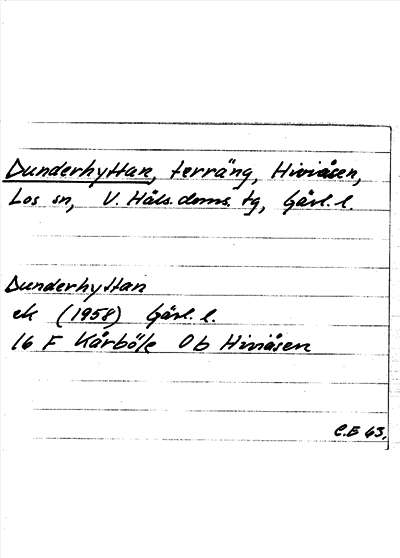 Dunderhyttan, terräng, Hiviåsen,
Los sn, V. Häls. doms. tg, Gävl. l.
Dunderhyttan
ek (1958) Gävl. l.
16 F Kårböle 0b Hiviåsen
C.E 63.